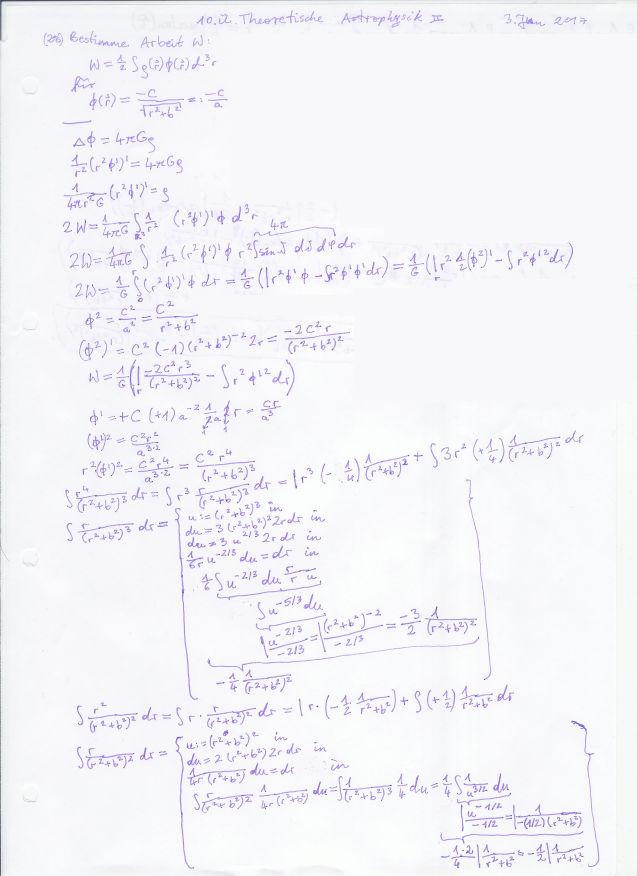 10.Ü. Theoretische Astrophysik II 3. Jan 2017
(206) Bestimme Arbeit W:
W = 1/2 ∫ρ(r⃗)ϕ(r⃗) d³r
für
ϕ(r⃗) = -C/√(r²+b²) =: -C/a
Δϕ = 4πGρ
1/r² (r²ϕ')' = 4πGρ
1/(4πr²G) (r²ϕ')' = ρ
2W = 1/(4πG) ∫ 1/r² (r²ϕ')' ϕ d³r
2W = 1/(4πG) ∫ 1/r² (r²ϕ')' ϕ r² ∫sinϑ dϑ dφ dr 4π
2W = 1/G ∫ (r²ϕ')' ϕ dr = 1/G (| r²ϕ'ϕ - ∫r²ϕ'ϕ' dr) = 1/G (| r² 1/2 (ϕ²)' - ∫r²ϕ'² dr)
ϕ² = C²/a² = C²/(r²+b²)
(ϕ²)' = C² (-1)(r²+b²)⁻² 2r = -2C²r/(r²+b²)²
W = 1/G (| -2C²r³/(r²+b²)² - ∫ r²ϕ'² dr)
ϕ' = +C (+1) a⁻² 1/2a 2r = Cr/a³
(ϕ')² = C²r²/a^(3·2)
r²(ϕ')² = C²r⁴/a^(3·2) = C²r⁴/(r²+b²)³
∫ r⁴/(r²+b²)³ dr = ∫ r³ r/(r²+b²)³ dr = | r³ (-1/4) 1/(r²+b²)² + ∫ 3r² (+1/4) 1/(r²+b²)² dr
∫ r/(r²+b²)³ dr = { u := (r²+b²)³ in
du = 3(r²+b²)² 2r dr in
du = 3 u^(2/3) 2r dr in
1/(6r) u^(-2/3) du = dr in
1/6 ∫ u^(-2/3) du r/(r u)
∫ u^(-5/3) du
| u^(-2/3)/(-2/3) = | (r²+b²)⁻²/(-2/3) = -3/2 1/(r²+b²)²
-1/4 1/(r²+b²)² }
∫ r²/(r²+b²)² dr = ∫ r · r/(r²+b²)² dr = | r · (-1/2 1/(r²+b²)) + ∫ (+1/2) 1/(r²+b²) dr
∫ r/(r²+b²)² dr = { u := (r²+b²)² in
du = 2(r²+b²) 2r dr in
1/(4r(r²+b²)) du = dr in
∫ r/(r²+b²)² 1/(4r(r²+b²)) du = ∫ 1/(r²+b²)³ 1/4 du = 1/4 ∫ 1/u^(3/2) du
| u^(-1/2)/(-1/2) = | 1/(-(1/2)(r²+b²))
-1·2/4 | 1/(r²+b²) = -1/2 | 1/(r²+b²) }